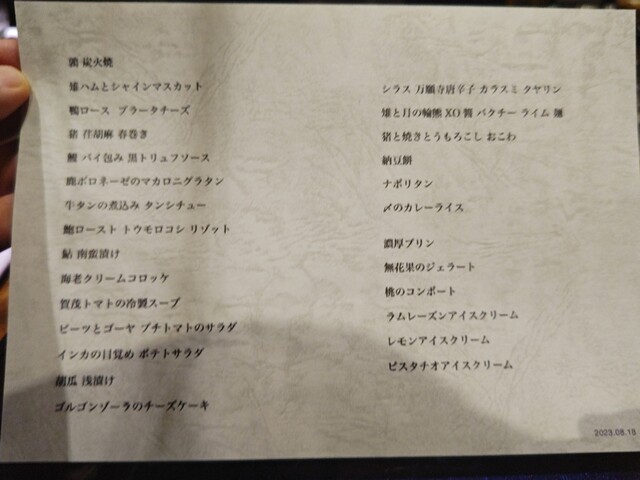 鶉 炭火焼
雉ハムとシャインマスカット
鴨ロース ブラータチーズ
猪 荏胡麻 春巻き
鰻 パイ包み 黒トリュフソース
鹿ボロネーゼのマカロニグラタン
牛タンの煮込み タンシチュー
鮑ロースト トウモロコシ リゾット
鮎 南蛮漬け
海老クリームコロッケ
賀茂トマトの冷製スープ
ビーツとゴーヤ プチトマトのサラダ
インカの目覚め ポテトサラダ
胡瓜 浅漬け
ゴルゴンゾーラのチーズケーキ
シラス 万願寺唐辛子 カラスミ タヤリン
雉と月の輪熊XO醤 パクチー ライム 麺
猪と焼きとうもろこし おこわ
納豆餅
ナポリタン
〆のカレーライス
濃厚プリン
無花果のジェラート
桃のコンポート
ラムレーズンアイスクリーム
レモンアイスクリーム
ピスタチオアイスクリーム
2023.08.18